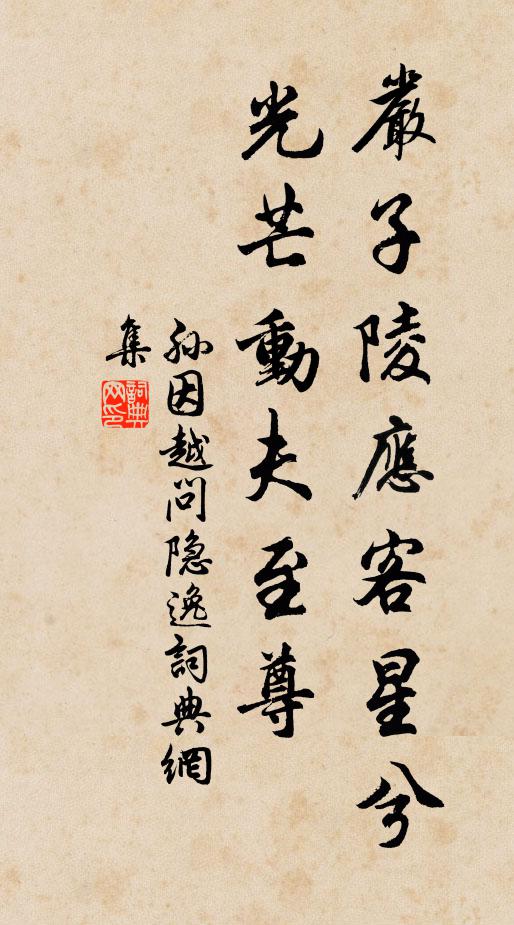 嚴子陵應客星兮
光芒動夫至尊
孫因越問隐逸詞典網
集
詞典網印